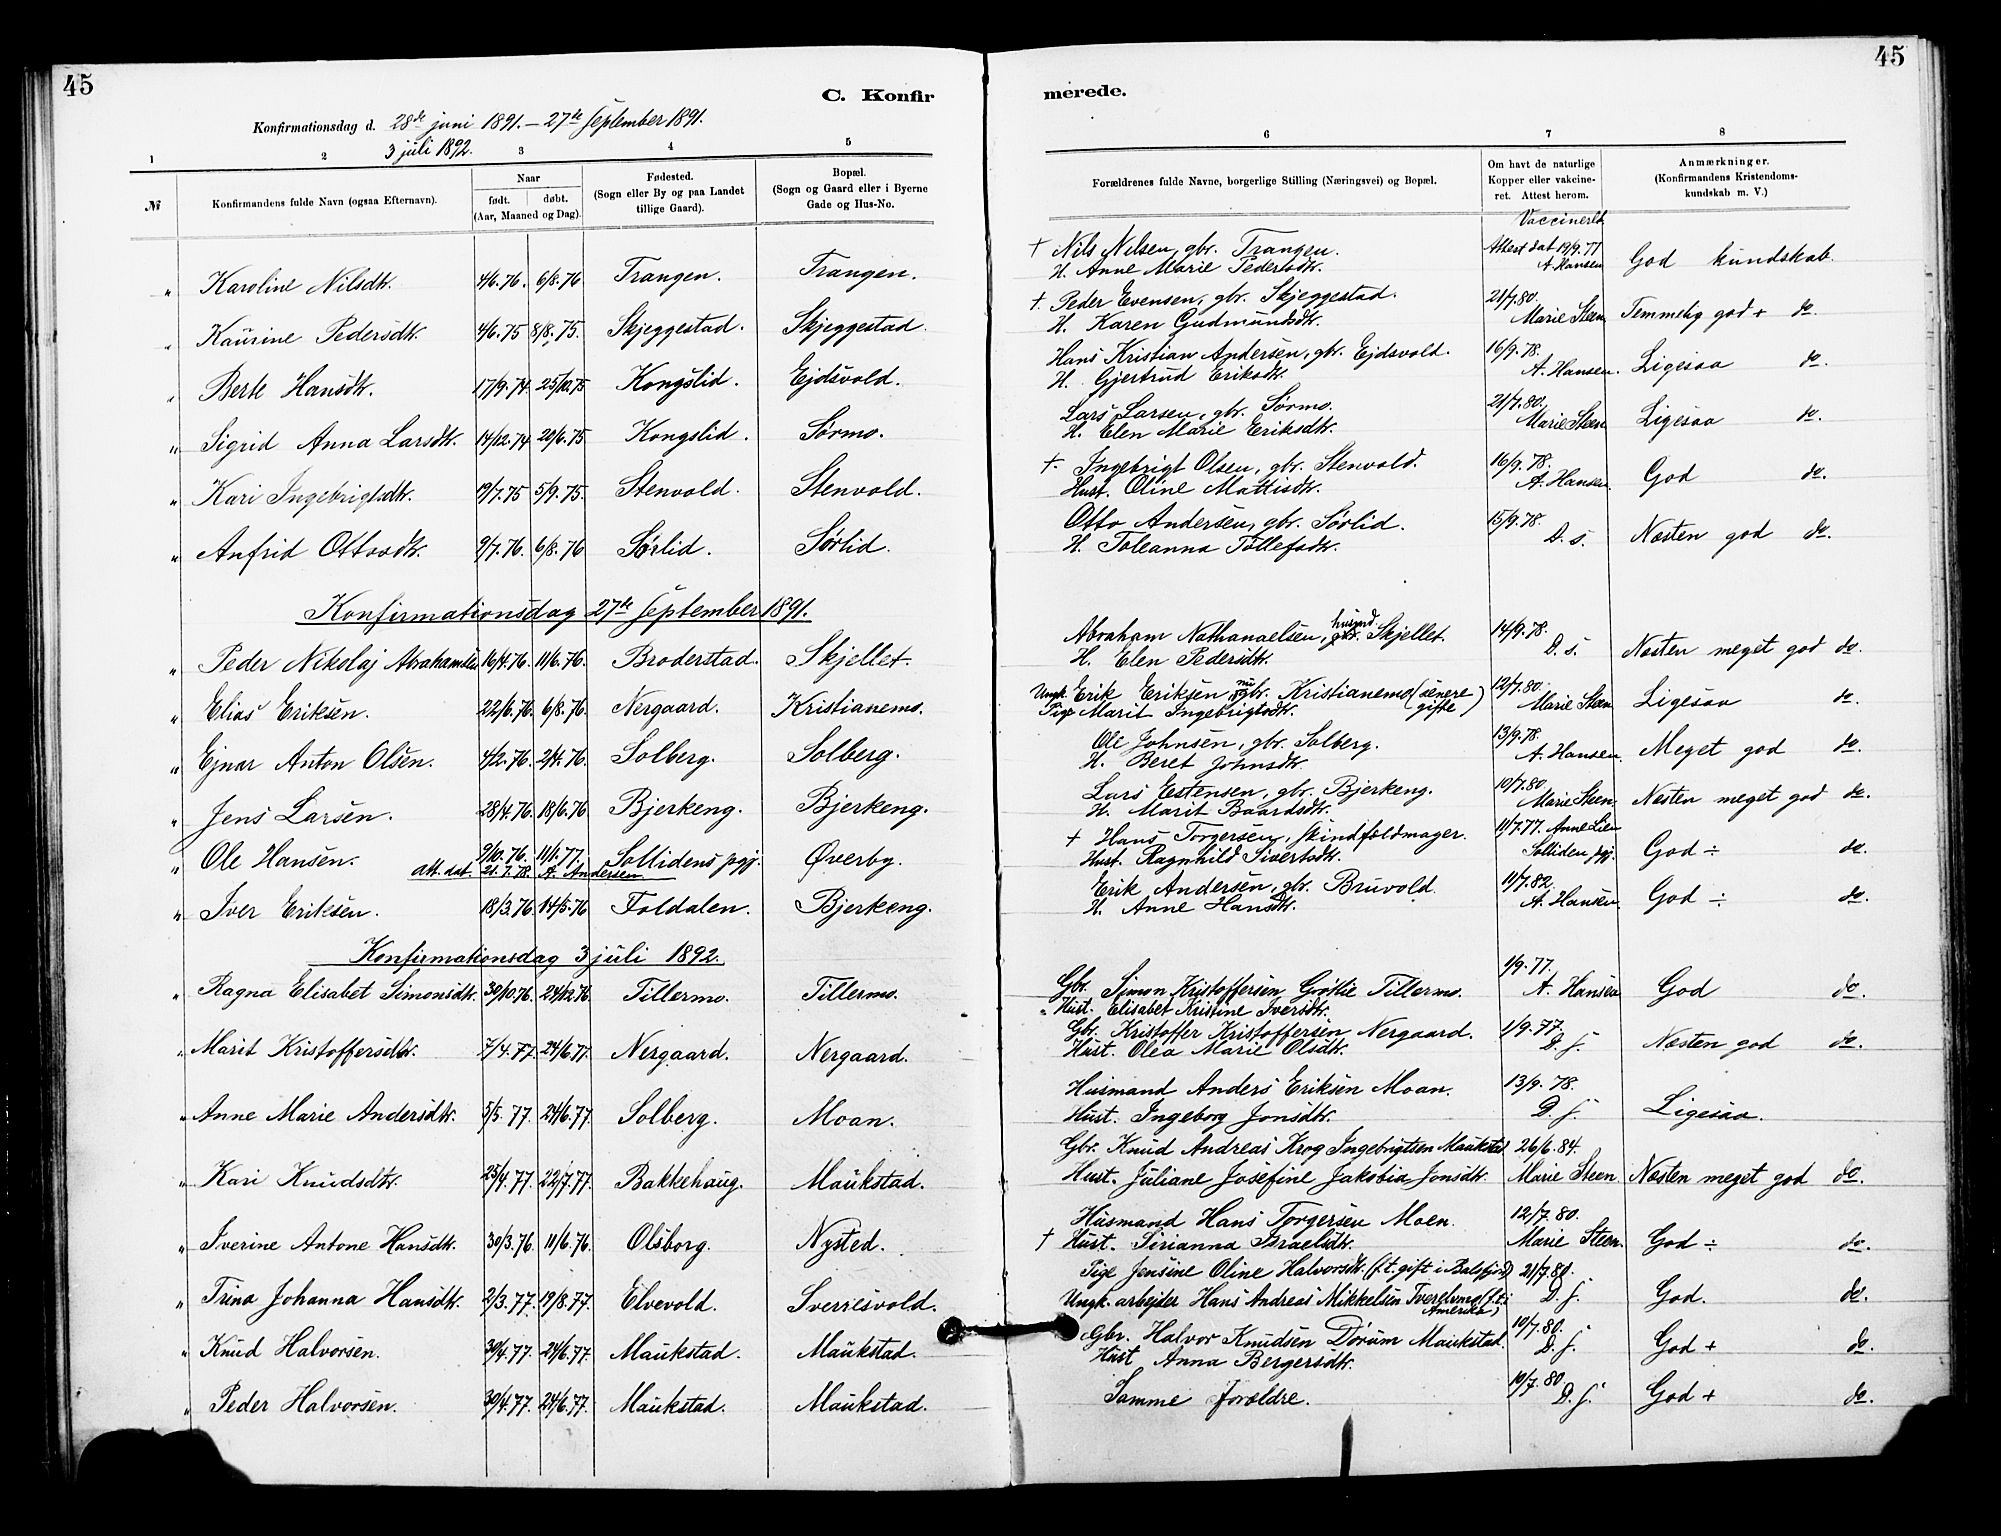 45
45
C. Konfir
merede.
Konfirmationsdag d. 28de juni 1891. – 27de September 1891.
3 juli 1892.
1 2 3 4 5 6 7 8
№
Konfirmandens fulde Navn (ogsaa Efternavn).
Naar
født. døbt.
(Aar, Maaned og Dag).
Fødested.
(Sogn eller By og paa Landet
tillige Gaard).
Bopæl.
(Sogn og Gaard eller i Byerne
Gade og Hus-No.
Forældrenes fulde Navne, borgerlige Stilling (Næringsvei) og Bopæl.
Om havt de naturlige
Kopper eller vakcine-
ret. Attest herom.
Anmærkninger.
(Konfirmandens Kristendoms-
kundskab m. V.)
Vaccineret
" Karoline Nilsdtr. 4/6.76. 6/8.76 Trangen. Trangen.
† Nils Nilsen, gbr. Trangen. Attest dat 19/9.77
H. Anne Marie Pedersdtr. A Hansen God kundskab.
" Kaurine Pedersdtr. 4/6.75 8/8.75. Skjeggestad. Skjeggestad.
†. Peder Evensen, gbr. Skjeggestad. 21/7.80.
H. Karen Gudmundsdtr. Marie Steen Temmelig god + do.
" Berte Hansdtr. 17/9.74. 25/10.75 Kongslid. Ejdsvold.
Hans Kristian Andersen, gbr. Ejdsvold. 16/9.78.
H. Gjertrud Eriksdtr. A. Hansen. Ligesaa do.
" Sigrid Anna Larsdtr. 14/12.74 20/6.75 Kongslid. Sørmo.
Lars Larsen, gbr. Sørmo. 21/7.80.
H. Elen Marie Eriksdtr. Marie Steen Ligesaa do.
" Kari Ingebrigtsdtr. 19/7.75 5/9.75. Stenvold. Stenvold.
†. Ingebrigt Olsen, gbr. Stenvold. 16/9.78.
Hust. Oline Mattisdtr. A. Hansen. God do.
" Anfrid Ottosdtr. 9/7.76. 6/8.76 Sørlid. Sørlid.
Otto Andersen, gbr. Sørlid. 15/9.78.
H. Toleanna Tollefsdtr. D. s. Næsten god do.
Konfirmationsdag 27de September 1891.
" Peder Nikolaj Abrahamsen 16/4.76. 11/6.76. Broderstad. Skjellet.
Abraham Nathanaelsen, husmd. Skjellet. 14/9.78.
H. Elen Pedersdtr. D. s. Næsten meget god do.
" Elias Eriksen. 22/6.76. 6/8.76. Nergaard. Kristianemo.
Ungk. Erik Eriksen, nu gbr. Kristianemo (senere 12/7.80.
Pige Marit Ingebrigtsdtr. gifte) Marie Steen Ligesaa do.
" Ejnar Anton Olsen. 4/2.76. 2/4.76. Solberg. Solberg.
Ole Johnsen, gbr. Solberg. 13/9.78.
H. Beret Johnsdtr. A. Hansen. Meget god do.
" Jens Larsen. 28/4.76. 18/6.76. Bjerkeng. Bjerkeng.
Lars Estensen, gbr. Bjerkeng. 10/7.80
H. Marit Baardsdtr. Marie Steen. Næsten meget god do.
" Ole Hansen. 9/10.76. 11/1.77. Sollidens pgj. Øverby.
att. dat. 21.7.78. A. Andersen
† Hans Torgersen, Skindfældmager. 11/7.77. Anne Lien
Hust. Ragnhild Sivertsdtr. Solliden pgj. God ÷ do.
" Iver Eriksen. 18/3.76. 14/5.76 Foldalen. Bjerkeng.
Erik Andersen, gbr. Bruvold. 11/7.82.
H. Anne Hansdtr. A. Hansen. God ÷ do.
Konfirmationsdag 3 juli 1892.
" Ragna Elisabet Simonsdtr. 30/10.76. 24/12.76. Tillermo. Tillermo.
Gbr. Simon Kristoffersen Gøttie Tillermo. 1/9.77.
" Hust. Elisabet Kristine Iversdtr. A. Hansen God do.
" Marit Kristoffersdtr. 7/4.77. 24/6.77. Nergaard. Nergaard.
Gbr. Kristoffer Kristoffersen Nergaard. 1/9.77.
Hust. Olea Marie Olsdtr. D. s. Næsten god do.
" Anne Marie Andersdtr. 5/5.77. 24/6.77. Solberg. Moan.
Husmand Anders Eriksen Moan. 13/9.78.
Hust. Ingeborg Jonsdtr. D. s. Ligesaa.
" Kari Knudsdtr. 25/4.77. 22/7.77. Bakkehaug. Maukstad.
Gbr. Knud Andreas Krog Ingebrigtsen Maukstad 26/6.84.
Hust. Juliane Josefine Jakobia Jonsdtr. Marie Steen Næsten meget god do.
" Iverine Antone Hansdtr. 30/3.76. 11/6.76. Olsborg. Nysted.
Husmand Hans Torgersen Moen. 12/7.80.
† Hust. Sirianna Israelsdtr. Marie Steen. God ÷ do.
" Trina Johanna Hansdtr. 2/3.77. 19/8.77. Elvevold. Sverresvold.
Pige Jensine Oline Halvorsdtr. (f. t. gift i Balsfjord) 21/7.80.
Ungk. arbejder Hans Andreas Mikkelsen Tverelvmo (f. t. i D. s. God. do.
Amerika)
" Knud Halvorsen. 30/4.77. 24/6.77. Maukstad. Maukstad.
Gbr. Halvor Knudsen Dørum Maukstad. 10/7.80.
Hust Anna Bergersdtr. D. s. God + do.
" Peder Halvorsen. 30/4.77. 24/6.77. Maukstad. Maukstad.
Samme Forældre. 10/7.80. D. s. God + do.